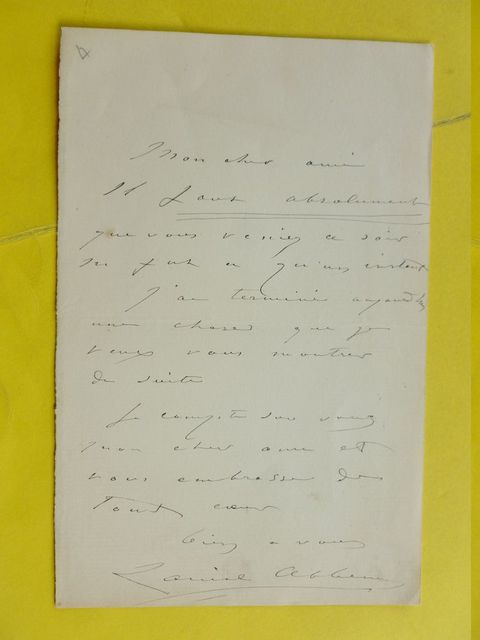 Mon cher ami
Il faut absolument
que vous veniez ce soir
ne fut ce qu'un instant
J'ai terminé aujourd'hui
une chose que je
veux vous montrer
de suite
Je compte sur vous
mon cher ami et
vous embrasse de
tout cœur
bien à vous
Louise Abbema